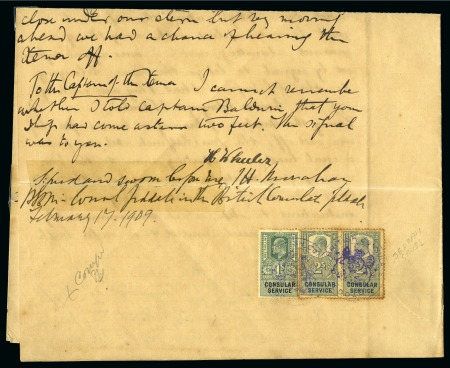 close under our stern but by moving
ahead we had a chance of hearing the
Xema off.
To the Captain of the Xema I cannot remember
whether I told captain Baldwin that your
ship had come astern two feet. The signal
was to you.
H Wheeler
Signed and sworn before me, J H
Consul Jeddah in the British Consulate Jeddah
February 17, 1909.
CONSULAR
SERVICE
CONSULAR
SERVICE
CONSULAR
SERVICE